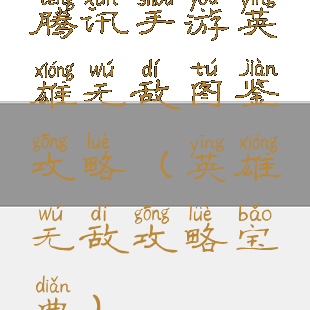 téng xùn shǒu yóu yīng
腾讯手游英
xióng wú dí tú jiàn
雄无敌图鉴
gōng lüè yīng xióng
攻略（英雄
wú dí gōng lüè bǎo
无敌攻略宝
diǎn
典）